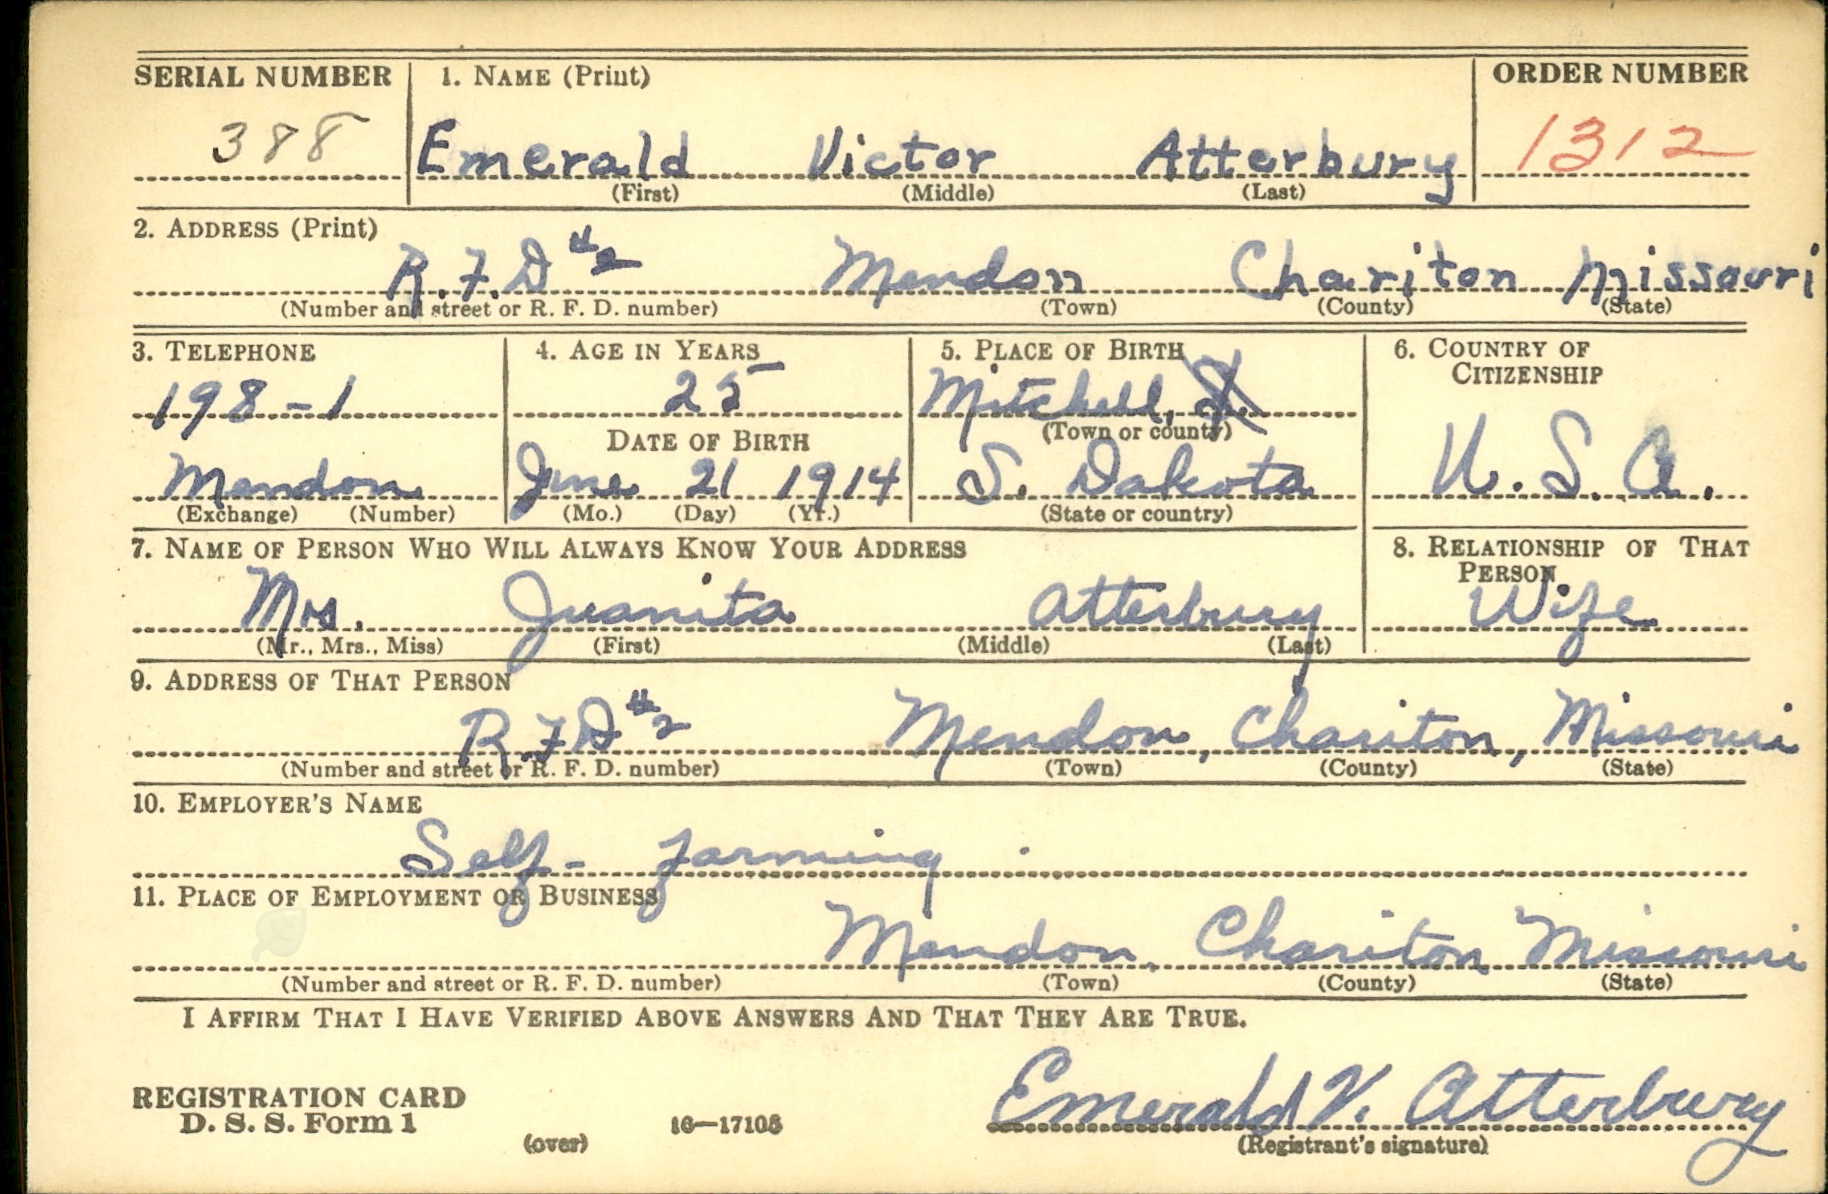 SERIAL NUMBER 1. NAME (Print) ORDER NUMBER
388 Emerald Victor Atterbury 1312
(First) (Middle) (Last)
2. ADDRESS (Print)
R.F.D #2 Mendon Chariton Missouri
(Number and street or R. F. D. number) (Town) (County) (State)
3. TELEPHONE 4. AGE IN YEARS 5. PLACE OF BIRTH 6. COUNTRY OF CITIZENSHIP
198-1 25 Mitchell,
DATE OF BIRTH (Town or county)
Mendon June 21 1914 S. Dakota U.S.A.
(Exchange) (Number) (Mo.) (Day) (Yr.) (State or country)
7. NAME OF PERSON WHO WILL ALWAYS KNOW YOUR ADDRESS 8. RELATIONSHIP OF THAT PERSON
Mrs. Juanita Atterbury Wife
(Mr., Mrs., Miss) (First) (Middle) (Last)
9. ADDRESS OF THAT PERSON
R.F.D #2 Mendon, Chariton, Missouri
(Number and street or R. F. D. number) (Town) (County) (State)
10. EMPLOYER'S NAME
Self - farming
11. PLACE OF EMPLOYMENT OR BUSINESS
Mendon, Chariton Missouri
(Number and street or R. F. D. number) (Town) (County) (State)
I AFFIRM THAT I HAVE VERIFIED ABOVE ANSWERS AND THAT THEY ARE TRUE.
REGISTRATION CARD
D. S. S. Form 1 16—17105 Emerald V. Atterbury
(over) (Registrant's signature)